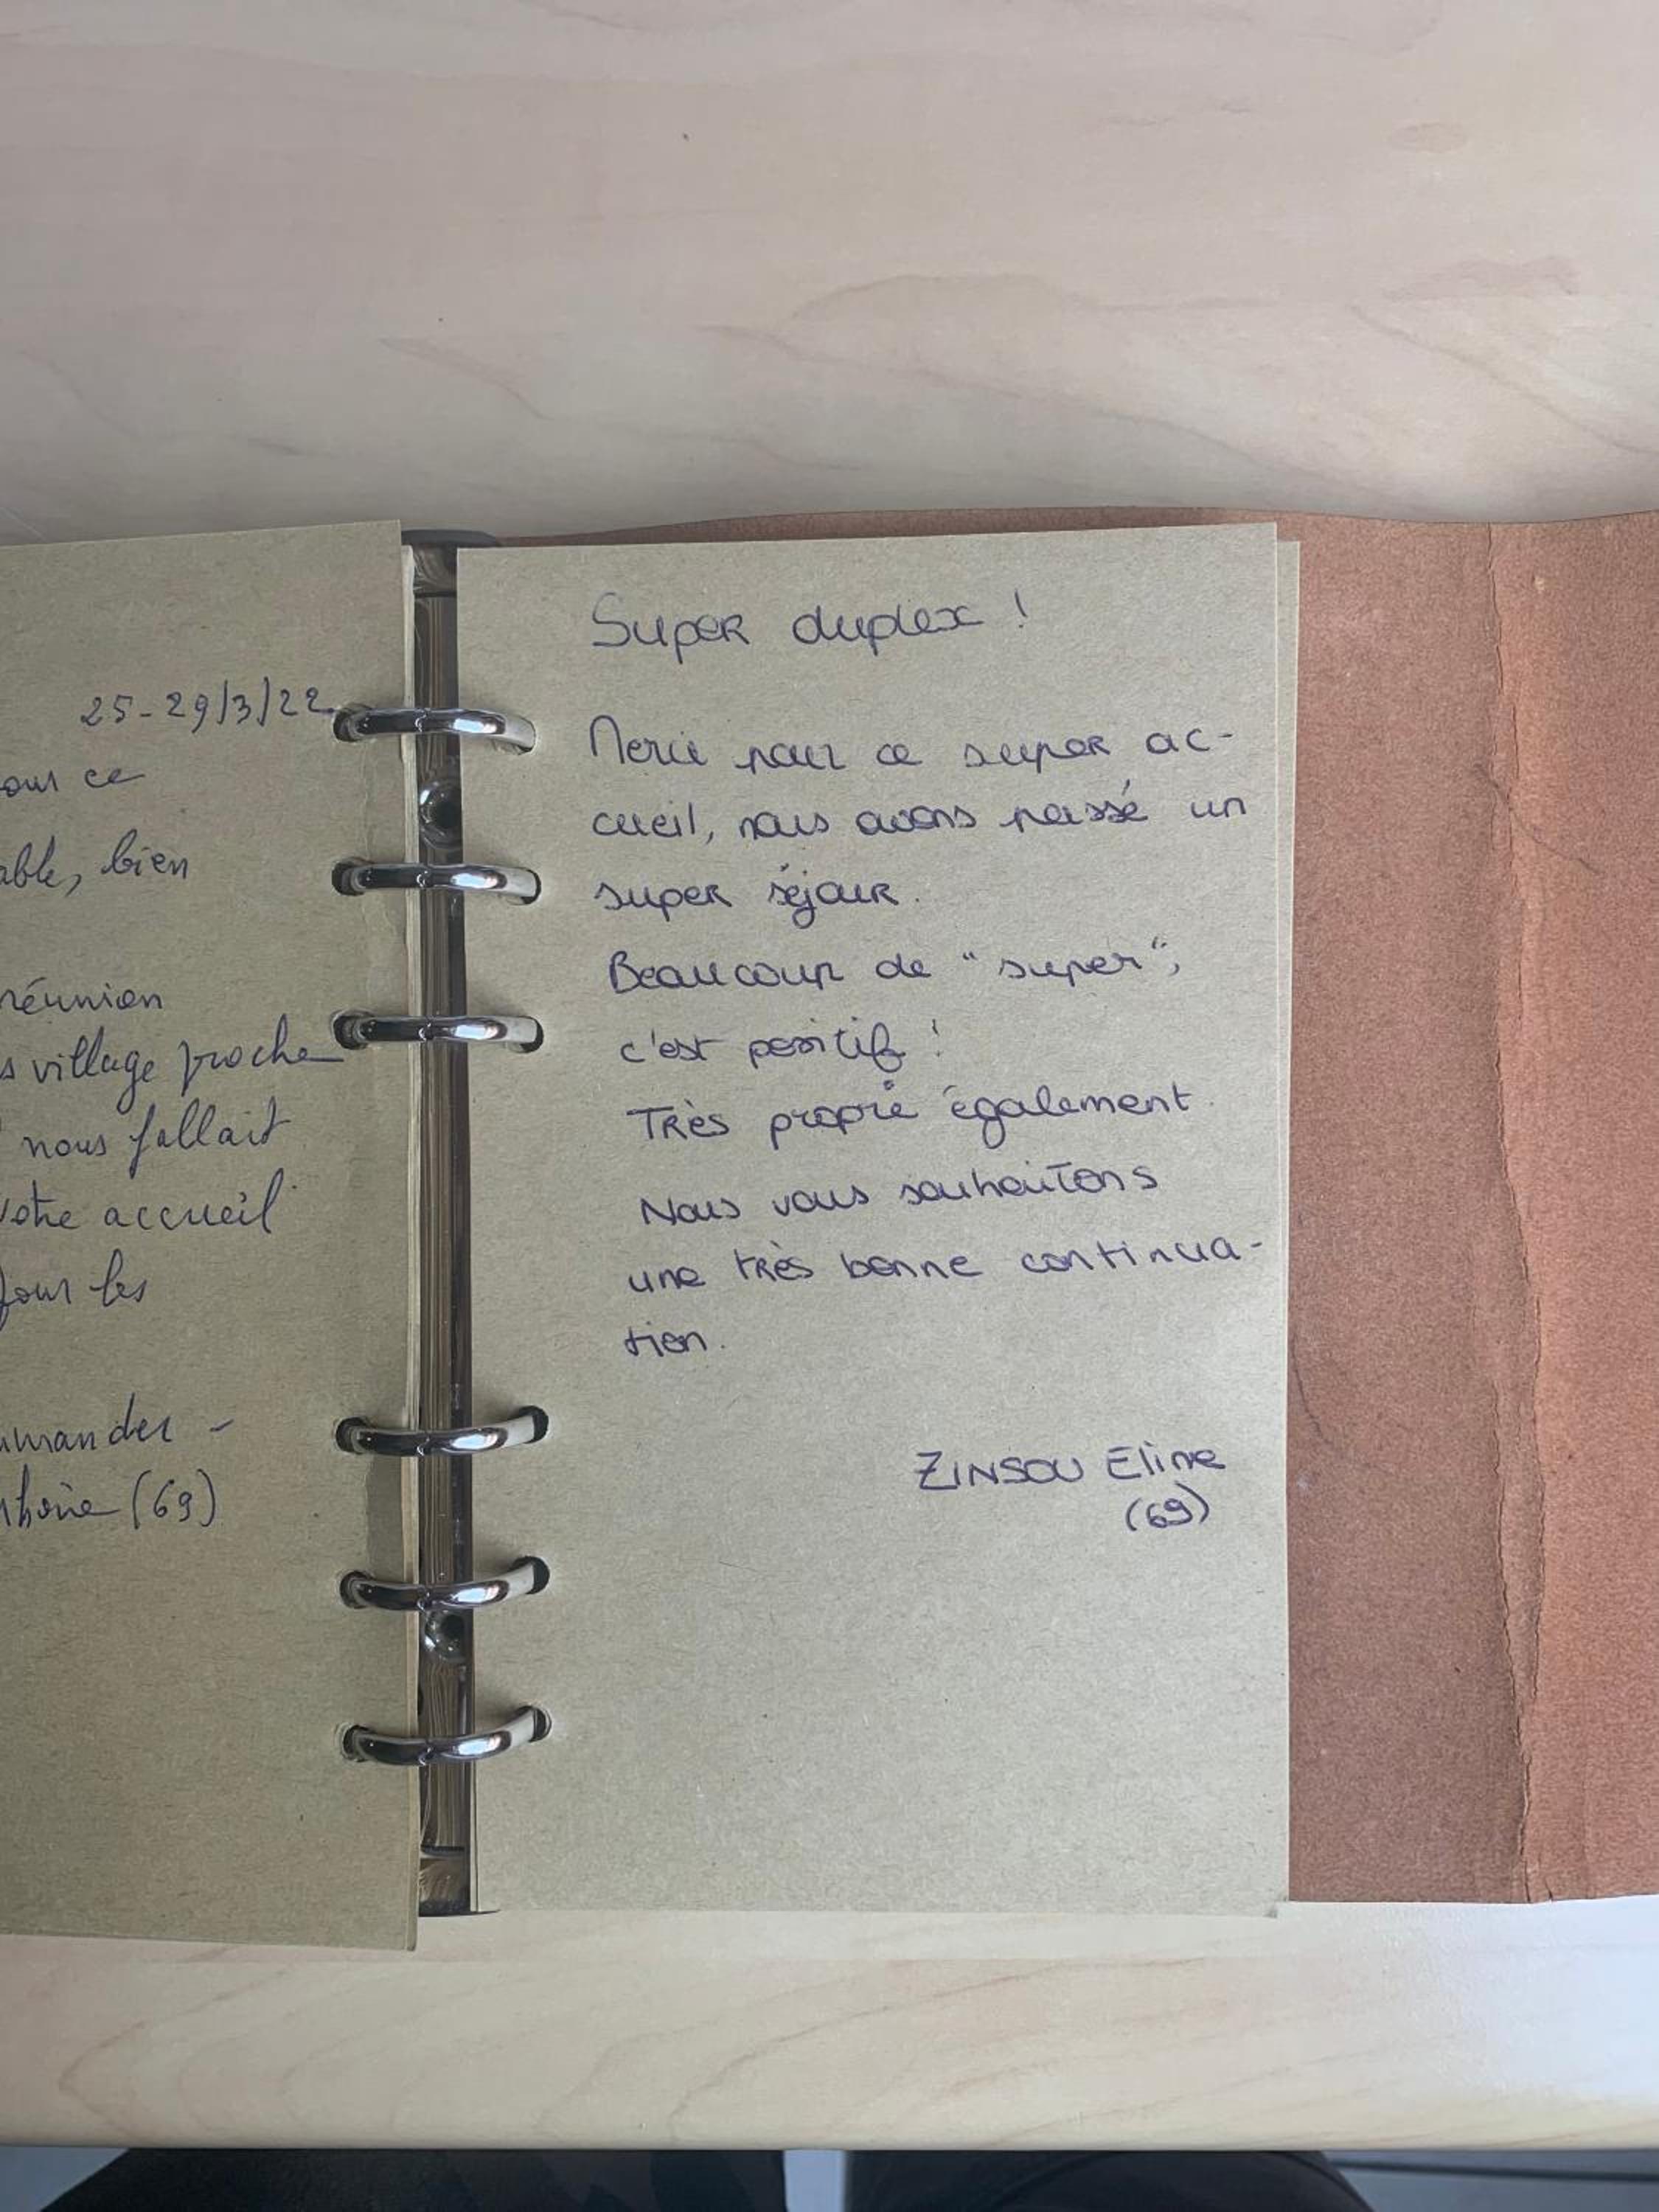 25-29/3/22
our ce
able, bien
réunion
s village proche
nous fallait
votre accueil
pour les
mmander -
(69)
Super duplex !
Merci pour ce super ac-
cueil, nous avons passé un
super séjour.
Beaucoup de "super",
c'est positif !
Très propre également.
Nous vous souhaitons
une très bonne continua-
tion.
ZINSOU Eline
(69)